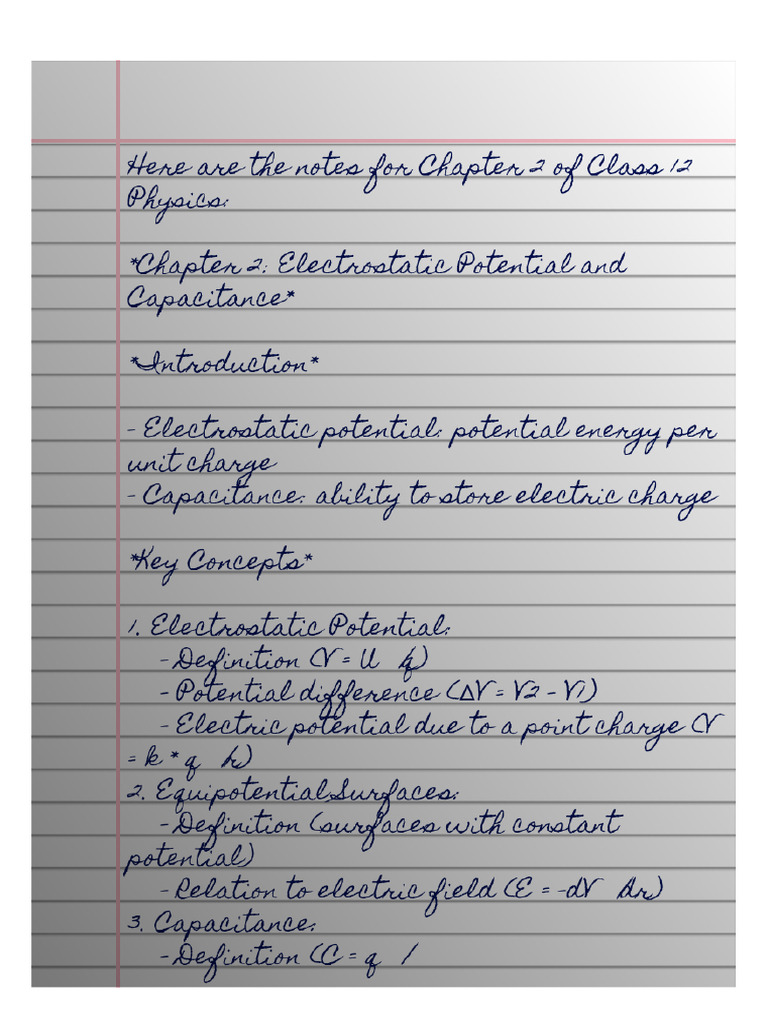 Here are the notes for Chapter 2 of Class 12
Physics:
*Chapter 2: Electrostatic Potential and
Capacitance*
*Introduction*
- Electrostatic potential: potential energy per
unit charge
- Capacitance: ability to store electric charge
*Key Concepts*
1. Electrostatic Potential:
- Definition (V = U / q)
- Potential difference (ΔV = V2 - V1)
- Electric potential due to a point charge (V
= k * q / r)
2. Equipotential Surfaces:
- Definition (surfaces with constant
potential)
- Relation to electric field (E = -dV / dr)
3. Capacitance:
- Definition (C = q /